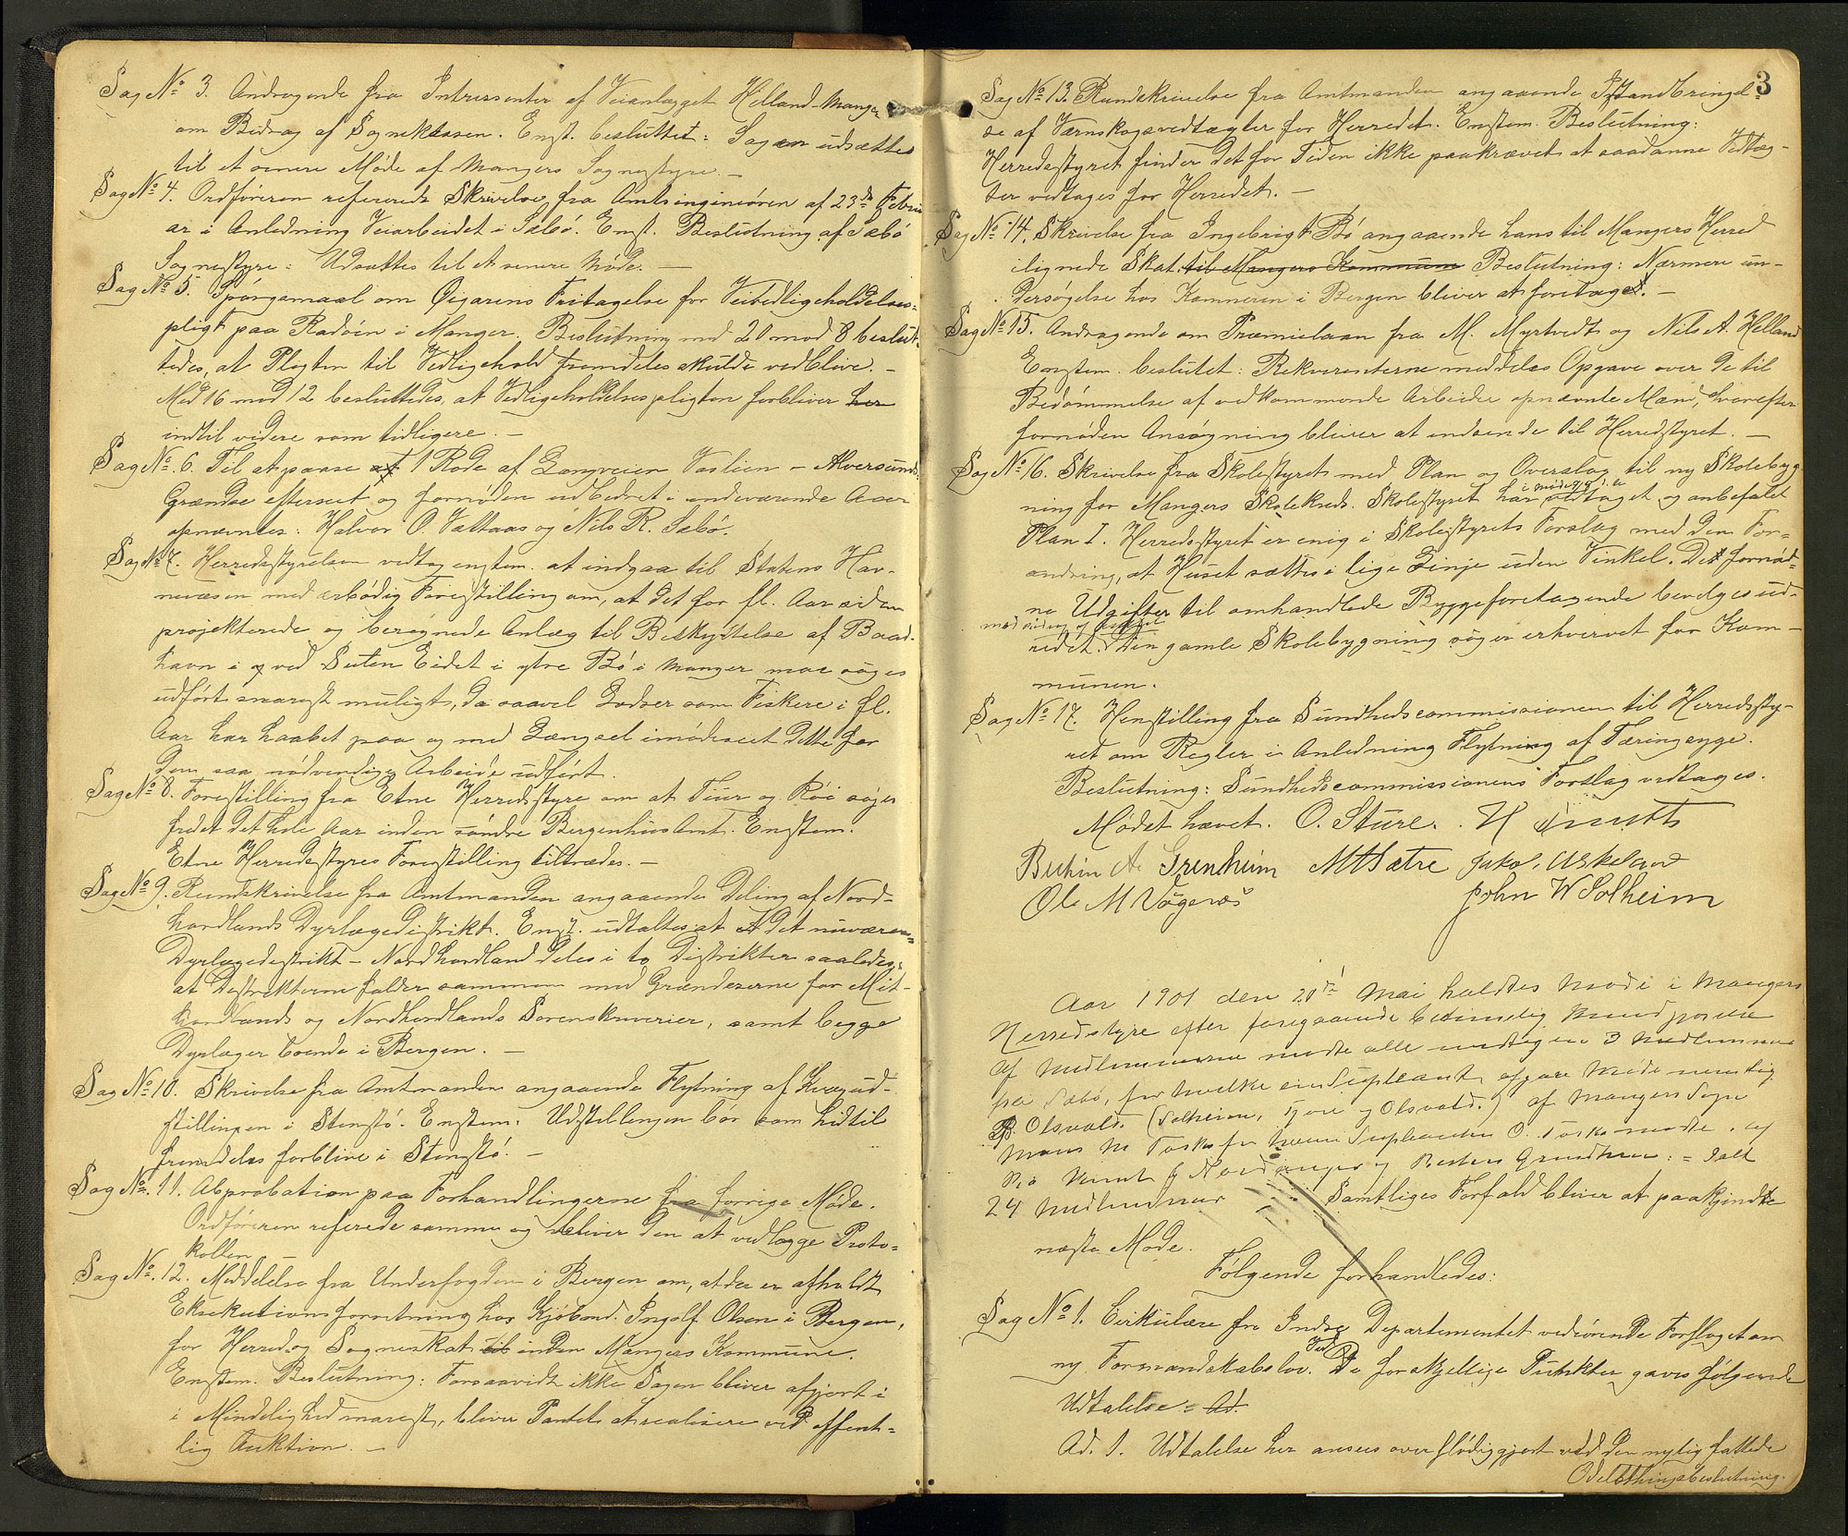 Sag No 3. Andragende fra Intressenter af Veianlægget Helland-Manger
om Bidrag af Sognekassen. Enst. besluttet: Sagen udsættes
til et senere Møde af Mangers Sognestyre. —
Sag No 4. Ordføreren refererede Skrivelse fra Amtsingeniøren af 23de Febru
ar i Anledning Veiarbeidet i Sæbö. Enst. Beslutning af Sæbö
Sognestyre: Udsættes til et senere Møde. —
Sag No 5. Spörgsmaal om Øigarens Fritagelse for Veivedligeholdelses-
pligt paa Radöen i Manger. Beslutning med 20 mod 8 beslut-
tedes, at Pligten til Vedligehold fremdeles skulde vedblive. —
Med 16 mod 12 besluttedes, at Vedligeholdelsespligten forbliver her
indtil videre som tidligere. —
Sag No 6. Til at paase at 1 Rode af Langveien Vaslien - Alversunds
Grændse efterseet og fornöden udbedret i indeværende Aaer
opnævntes: Halvor O. Vættaas og Nils R. Sæbö.
Sag No 7. Herredsstyrelsen vedtog enstem. at indgaa til Statens Hav-
nevæsen med ærbödig Forestilling om, at det for fl. Aar siden
projekterede og beregnede Anlæg til Beskyttelse af Baad-
havn i og ved Suten Eidet i ytre Bö i Manger maa söges
udfört snarest muligt, da saavel Lodser som Fiskere i fl.
Aar har haabet paa og med Længsel imödeseet dette for
dem saa nödvendige Arbeide udfört.
Sag No 8. Forestilling fra Etne Herredsstyre om at Tiur og Röi söges
fredet det hele Aar inden söndre Bergenhus Amt. Enstem.
Etne Herredsstyres Forestilling tiltrædes. —
Sag No 9. Rundskrivelse fra Amtmanden angaaende Deling af Nord-
hordlands Dyrlægedistrikt. Enst. udtaltes at det nuværende
Dyrlægedistrikt - Nordhordland deles i to Distrikter saaledes,
at Distrikterne falder sammen med Grændserne for Mit-
hordlands og Nordhordlands Sorenskriverier, samt begge
Dyrlæger boende i Bergen. —
Sag No 10. Skrivelse fra Amtmanden angaaende Flytning af Kvægud-
stillingen i Stenstö. Enstem: Udstillingen bör som hidtil
fremdeles forblive i Stenstö. —
Sag No 11. Abprobation paa Forhandlingerne fra forrige Møde.
Ordföreren referede samme og bliver den at vedlægge Proto-
kollen
Sag No. 12. Meddelelse fra Underfogden i Bergen om, at der er afholdt
Eksekutionsforretning hos Kjöbmd. Ingolf Olsen i Bergen,
for Herred og Sogneskat til inden Mangers Kommune.
Enstem. Beslutning: Forsaavidt ikke Sagen bliver afgjort i
i Mindelighed snarest, bliver Pantet at realisere ved offent-
lig Auktion. —
3
Sag No 13. Rundskrivelse fra Amtmanden angaaende Istandbringel-
se af Værnskogsvedtægter for Herredet. Enstem. Beslutning:
Herredsstyret finder det for Tiden ikke paakrævet at saadanne Vedtæg-
ter vedtages for Herredet. —
Sag No 14. Skrivelse fra Ingebrigt Bö angaaende hans til Mangers Herred
ilignede Skat til Mangers Kommune Beslutning: Nærmere un-
dersøgelse hos Kemneren i Bergen bliver at foretaget. —
Sag No 15. Andragende om Præmielaan fra M. Myrtvedt og Nils A. Helland
Enstem. beslutet: Rekvirenterne meddeles Opgave over de til
Bedömmelse af vedkommende Arbeide opnævnte Mænd, hvorefter
fornöden Ansøgning bliver at indsende til Herredsstyret. —
Sag No 16. Skrivelse fra Skolestyret med Plan og Overslag til ny Skolebyg-
ning for Mangers Skolekreds. Skolestyret har vedtaget og anbefalet
Plan I. Herredsstyret er enig i Skolestyrets Forslag med den For-
andring, at Huset sættes i lige Linje uden Vinkel. Det fornød-
ne Udgifter til omhandlede Byggeforetagende bevilges ud-
redet. Den gamle Skolebygning söges erhvervet for Kom-
munen.
Sag No 17. Henstilling fra Sundhedscommissionen til Herredssty-
ret om Regler i Anledning Flytning af Tæringsyge.
Beslutning: Sundhedscommissionens Forslag vedtages.
Mödet hævet. O. Sture.
M Sætre Jakob Askeland
Ole M Vågenes John W Solheim
Aar 1901 den 20de Mai holdtes Møde i Mangers
Herredsstyre efter foregaaende
af Medlemmerne mødte alle undtagen 3 Medlemmer
fra Sæbö, for hvilke
Olsvold. (Solheim, og Olsvold.) af Mangers Sogn
Mons
24 Medlemmer Samtliges Forfald bliver at paakjende
næste Møde.
Følgende forhandledes:
Sag No 1. Cirkulære fra Indre Departementet vedrörende Forslaget om
ny Formandskabslov. Ved De forskjellige Punkter gaves følgende
Udtalelse = Ad.
Ad. 1. Udtalelse her ansees overflödiggjort ved den nylig fattede
Odelsthingsbeslutning.